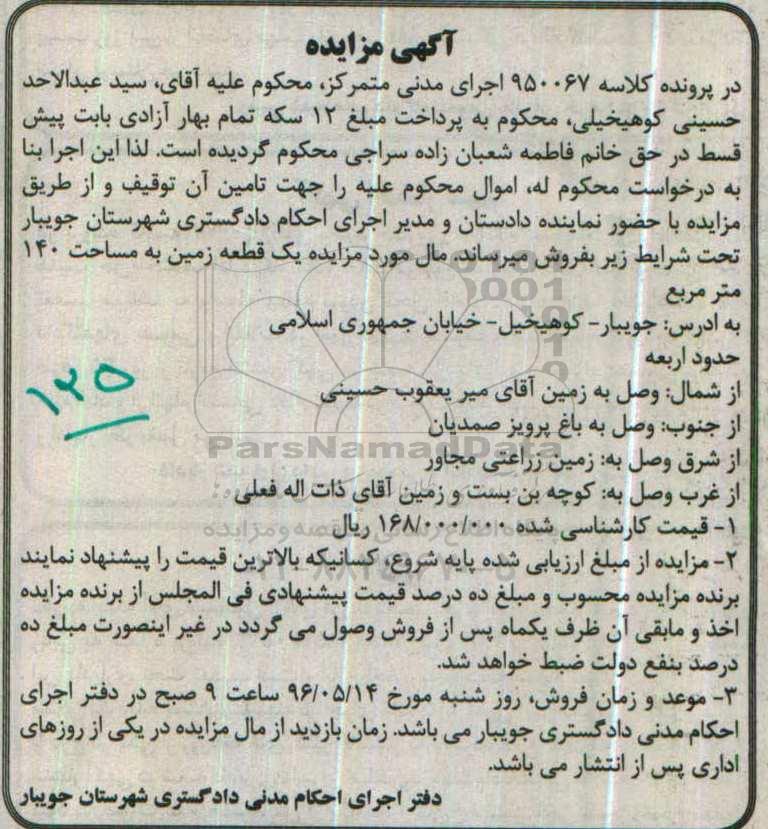 آگهی مزایده
در پرونده کلاسه ۹۵۰۰۶۷ اجرای مدنی متمرکز، محکوم علیه آقای، سید عبدالاحد
حسینی کوهیخیلی، محکوم به پرداخت مبلغ ۱۲ سکه تمام بهار آزادی بابت پیش
قسط در حق خانم فاطمه شعبان زاده سراجی محکوم گردیده است. لذا این اجرا بنا
به درخواست محکوم له، اموال محکوم علیه را جهت تامین آن توقیف و از طریق
مزایده با حضور نماینده دادستان و مدیر اجرای احکام دادگستری شهرستان جویبار
تحت شرایط زیر بفروش میرساند. مال مورد مزایده یک قطعه زمین به مساحت ۱۴۰
متر مربع
به ادرس: جویبار- کوهیخیل- خیابان جمهوری اسلامی
حدود اربعه
از شمال: وصل به زمین آقای میر یعقوب حسینی
۱۲۵
از جنوب: وصل به باغ پرویز صمدیان
ParsNamadData
از شرق وصل به: زمین زراعتی مجاور
از غرب وصل به: کوچه بن بست و زمین آقای ذات اله فعلی
۱- قیمت کارشناسی شده ۱۶۸/۰۰۰/۰۰۰ ریال
۲- مزایده از مبلغ ارزیابی شده پایه شروع، کسانیکه بالاترین قیمت را پیشنهاد نمایند
برنده مزایده محسوب و مبلغ ده درصد قیمت پیشنهادی فی المجلس از برنده مزایده
اخذ و مابقی آن ظرف یکماه پس از فروش وصول می گردد در غیر اینصورت مبلغ ده
درصد بنفع دولت ضبط خواهد شد.
۳- موعد و زمان فروش، روز شنبه مورخ ۹۶/۰۵/۱۴ ساعت ۹ صبح در دفتر اجرای
احکام مدنی دادگستری جویبار می باشد. زمان بازدید از مال مزایده در یکی از روزهای
اداری پس از انتشار می باشد.
دفتر اجرای احکام مدنی دادگستری شهرستان جویبار